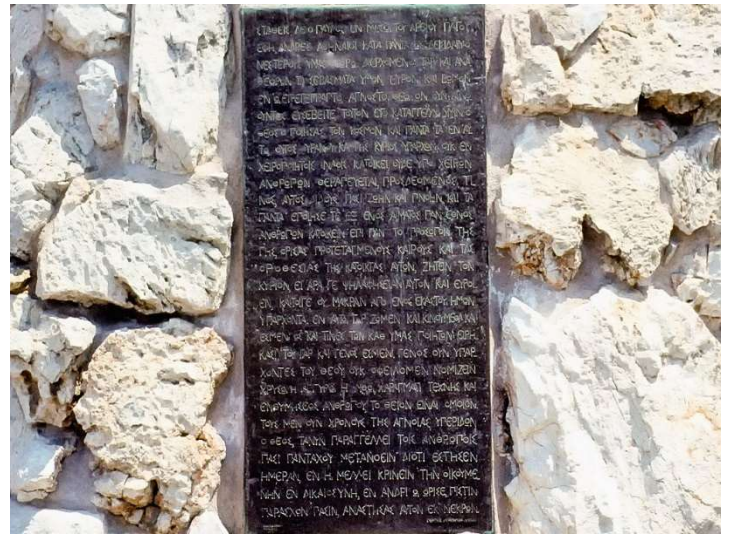 ΣΤΑΘΕΙΣ ΔΕ Ο ΠΑΥΛΟΣ ΕΝ ΜΕΣΩ ΤΟΥ ΑΡΕΙΟΥ ΠΑΓΟΥ
ΕΦΗ ΑΝΔΡΕΣ ΑΘΗΝΑΙΟΙ ΚΑΤΑ ΠΑΝΤΑ ΩΣ ΔΕΙΣΙΔΑΙΜΟ
ΝΕΣΤΕΡΟΥΣ ΥΜΑΣ ΘΕΩΡΩ ΔΙΕΡΧΟΜΕΝΟΣ ΓΑΡ ΚΑΙ ΑΝΑ
ΘΕΩΡΩΝ ΤΑ ΣΕΒΑΣΜΑΤΑ ΥΜΩΝ, ΕΥΡΟΝ ΚΑΙ ΒΩΜΟΝ
ΕΝ Ω ΕΠΕΓΕΓΡΑΠΤΟ, ΑΓΝΩΣΤΩ ΘΕΩ. ΟΝ ΟΥΝ ΑΓΝΟ
ΟΥΝΤΕΣ ΕΥΣΕΒΕΙΤΕ ΤΟΥΤΟΝ ΕΓΩ ΚΑΤΑΓΓΕΛΛΩ ΥΜΙΝ. Ο
ΘΕΟΣ Ο ΠΟΙΗΣΑΣ ΤΟΝ ΚΟΣΜΟΝ ΚΑΙ ΠΑΝΤΑ ΤΑ ΕΝ ΑΥ
ΤΩ, ΟΥΤΟΣ ΟΥΡΑΝΟΥ ΚΑΙ ΓΗΣ ΚΥΡΙΟΣ ΥΠΑΡΧΩΝ ΟΥΚ ΕΝ
ΧΕΙΡΟΠΟΙΗΤΟΙΣ ΝΑΟΙΣ ΚΑΤΟΙΚΕΙ ΟΥΔΕ ΥΠΟ ΧΕΙΡΩΝ
ΑΝΘΡΩΠΩΝ ΘΕΡΑΠΕΥΕΤΑΙ, ΠΡΟΣΔΕΟΜΕΝΟΣ ΤΙ
ΝΟΣ, ΑΥΤΟΣ ΔΙΔΟΥΣ ΠΑΣΙ ΖΩΗΝ ΚΑΙ ΠΝΟΗΝ ΚΑΙ ΤΑ
ΠΑΝΤΑ ΕΠΟΙΗΣΕ ΤΕ ΕΞ ΕΝΟΣ ΑΙΜΑΤΟΣ ΠΑΝ ΕΘΝΟΣ
ΑΝΘΡΩΠΩΝ ΚΑΤΟΙΚΕΙΝ ΕΠΙ ΠΑΝ ΤΟ ΠΡΟΣΩΠΟΝ ΤΗΣ
ΓΗΣ, ΟΡΙΣΑΣ ΠΡΟΤΕΤΑΓΜΕΝΟΥΣ ΚΑΙΡΟΥΣ ΚΑΙ ΤΑΣ
ΟΡΟΘΕΣΙΑΣ ΤΗΣ ΚΑΤΟΙΚΙΑΣ ΑΥΤΩΝ, ΖΗΤΕΙΝ ΤΟΝ
ΚΥΡΙΟΝ, ΕΙ ΑΡΑ ΓΕ ΨΗΛΑΦΗΣΕΙΑΝ ΑΥΤΟΝ ΚΑΙ ΕΥΡΟΙ
ΕΝ, ΚΑΙΤΟΙΓΕ ΟΥ ΜΑΚΡΑΝ ΑΠΟ ΕΝΟΣ ΕΚΑΣΤΟΥ ΗΜΩΝ
ΥΠΑΡΧΟΝΤΑ. ΕΝ ΑΥΤΩ ΓΑΡ ΖΩΜΕΝ ΚΑΙ ΚΙΝΟΥΜΕΘΑ ΚΑΙ
ΕΣΜΕΝ ΩΣ ΚΑΙ ΤΙΝΕΣ ΤΩΝ ΚΑΘ ΥΜΑΣ ΠΟΙΗΤΩΝ ΕΙΡΗ
ΚΑΣΙ ΤΟΥ ΓΑΡ ΚΑΙ ΓΕΝΟΣ ΕΣΜΕΝ. ΓΕΝΟΣ ΟΥΝ ΥΠΑΡ
ΧΟΝΤΕΣ ΤΟΥ ΘΕΟΥ ΟΥΚ ΟΦΕΙΛΟΜΕΝ ΝΟΜΙΖΕΙΝ
ΧΡΥΣΩ Η ΑΡΓΥΡΩ Η ΛΙΘΩ, ΧΑΡΑΓΜΑΤΙ ΤΕΧΝΗΣ ΚΑΙ
ΕΝΘΥΜΗΣΕΩΣ ΑΝΘΡΩΠΟΥ, ΤΟ ΘΕΙΟΝ ΕΙΝΑΙ ΟΜΟΙΟΝ.
ΤΟΥΣ ΜΕΝ ΟΥΝ ΧΡΟΝΟΥΣ ΤΗΣ ΑΓΝΟΙΑΣ ΥΠΕΡΙΔΩΝ
Ο ΘΕΟΣ ΤΑΝΥΝ ΠΑΡΑΓΓΕΛΛΕΙ ΤΟΙΣ ΑΝΘΡΩΠΟΙΣ
ΠΑΣΙ ΠΑΝΤΑΧΟΥ ΜΕΤΑΝΟΕΙΝ ΔΙΟΤΙ ΕΣΤΗΣΕΝ
ΗΜΕΡΑΝ, ΕΝ Η ΜΕΛΛΕΙ ΚΡΙΝΕΙΝ ΤΗΝ ΟΙΚΟΥΜΕ
ΝΗΝ ΕΝ ΔΙΚΑΙΟΣΥΝΗ, ΕΝ ΑΝΔΡΙ Ω ΩΡΙΣΕ, ΠΙΣΤΙΝ
ΠΑΡΑΣΧΩΝ ΠΑΣΙΝ, ΑΝΑΣΤΗΣΑΣ ΑΥΤΟΝ ΕΚ ΝΕΚΡΩΝ.